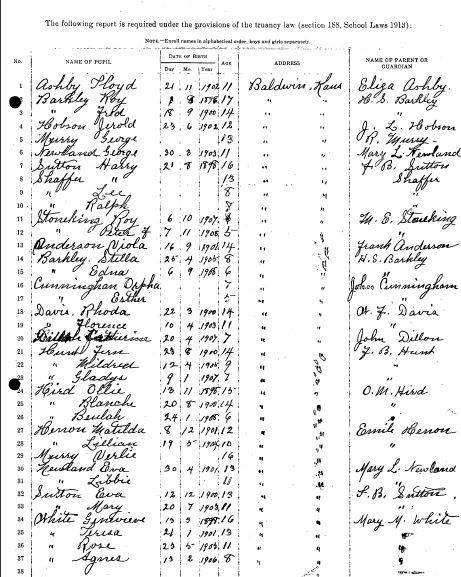 The following report is required under the provisions of the truancy law (section 188, School Laws 1913):
NOTE.—Enroll names in alphabetical order, boys and girls separately.
No. NAME OF PUPIL DATE OF BIRTH Day Mo. Year Age ADDRESS NAME OF PARENT OR GUARDIAN
1 Ashby Floyd 21 11 1902 11 Baldwin, Kans Eliza Ashby.
2 Barkley Roy 8 17 " " H. S. Barkley
3 " Fred 18 9 14 " "
4 Hobson Jerold 23 6 1902 12 " " J. L. Hobson
5 Murry George 13 " " R. Murry
6 Newland George 30 11 " " Mary L. Newland
7 Sutton Harry 21 8 16 " " F B. Sutton
8 Shaffer " 13 " " Shaffer
9 " Lee 8 " "
10 " Ralph " "
11 Stoneking Roy 6 10 1907 " " M. E. Stoneking
12 " 7 11 1908 5 " "
13 Anderson Viola 16 9 14 " " Frank Anderson
14 Barkley Stella 25 4 1905 8 " " H.S. Barkley
15 " Edna 6 9 6 " "
16 Cunningham Orpha 7 " " Cunningham
17 " Esther 5 " "
18 Davis, Rhoda 22 3 1900 14 " " Davis
19 " Florence 10 4 1903 11 " "
20 Dillon Catherine 20 4 1907 7 " " John Dillon
21 Hunt Fern 23 8 1900 14 " " F. B. Hunt
22 " Mildred 12 4 9 " "
23 " Gladys 9 1 1907 7 " "
24 Hird Ollie 13 11 15 " " O. M. Hird
25 " Blanche 20 8 14 " "
26 " Beulah 24 1 6 " "
27 Henon Matilda 8 12 1901 12 " " Emile Henon
28 " Lillian 19 5 10 " "
29 Murry Verlie 16 " "
30 Newland Eva 30 4 1901 13 " " Mary L. Newland
31 " Libbie 11 " "
32 Sutton Eva 12 12 1900 13 " " F. B. Sutton
33 " Mary 20 7 11 " "
34 White Genevieve 13 3 16 " " Mary M. White
35 " Teresa 24 1 1901 13 " "
36 " Rose 23 5 1903 11 " "
37 " Agnes 13 2 1906 8 " "
38